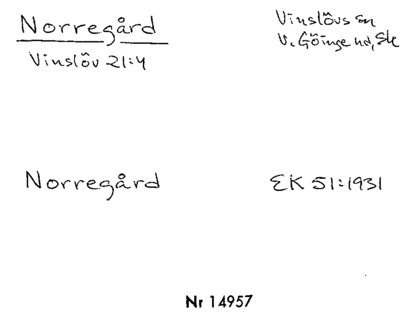 Norregård
Vinslöv 21:4
Vinslövs sn
V. Göinge hd, Sk
Norregård
EK 51:1931
Nr 14957